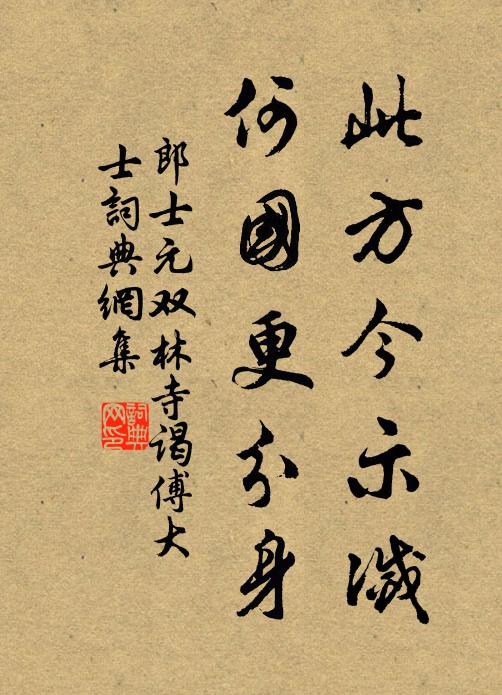 此方今示滅
何國更分身
郎士元双林寺谒傅大
士詞典網集
詞典网印